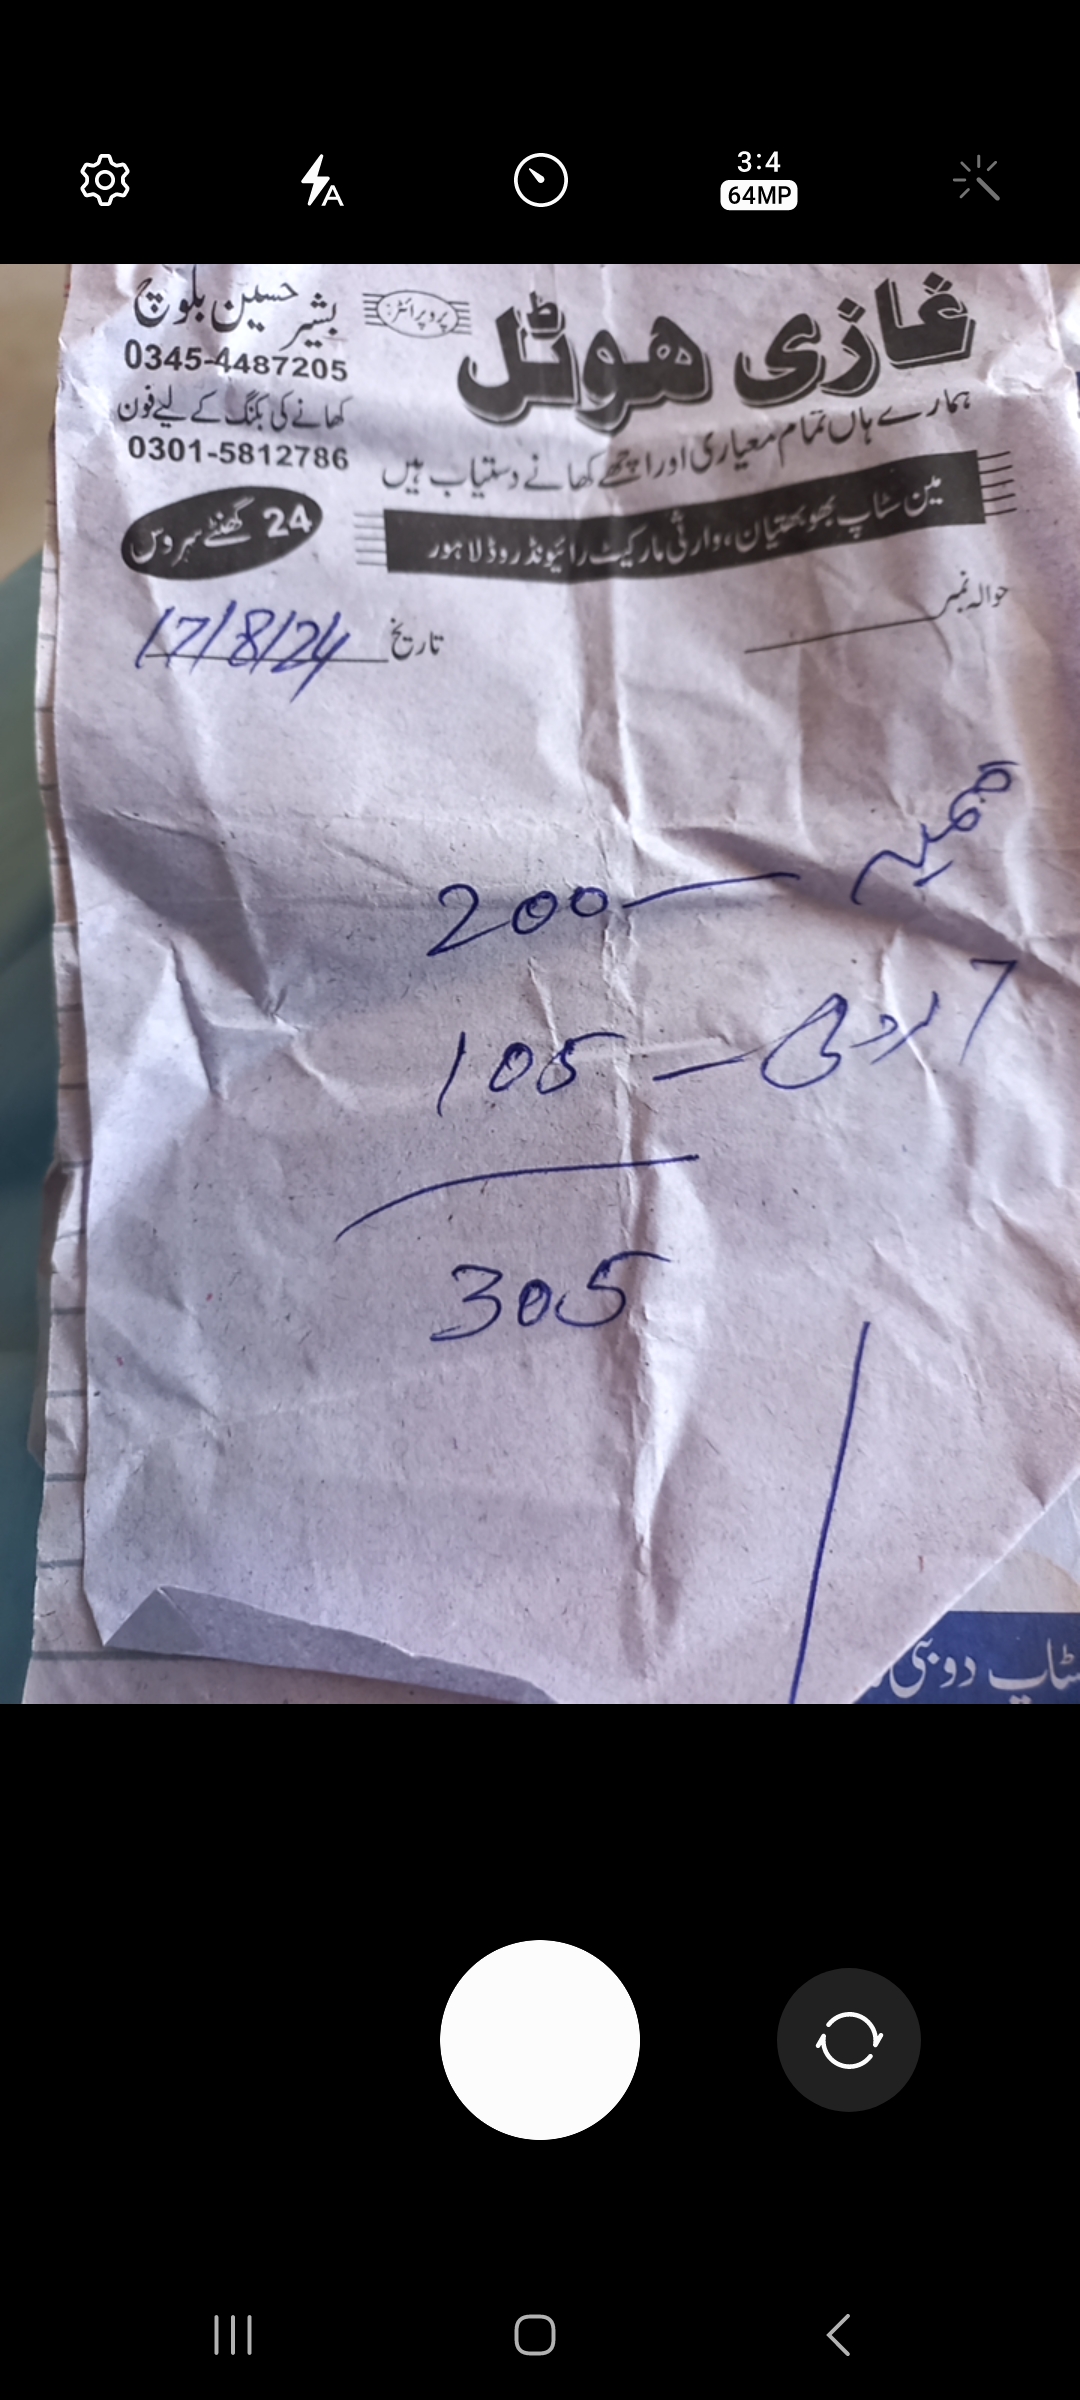 3:4
64MP
غازی ہوٹل
پروپرائٹر:
بشیر حسین بلوچ
0345-4487205
کھانے کی بکنگ کے لیے فون
0301-5812786
ہمارے ہاں تمام معیاری اور اچھے کھانے دستیاب ہیں
مین سٹاپ بھوبھتیان، وارثی مارکیٹ رائیونڈ روڈ لاہور
24 گھنٹے سروس
حوالہ نمبر
تاریخ 17/8/24
قیمہ — 200
7 روٹی — 105
305
سٹاپ دوبئی